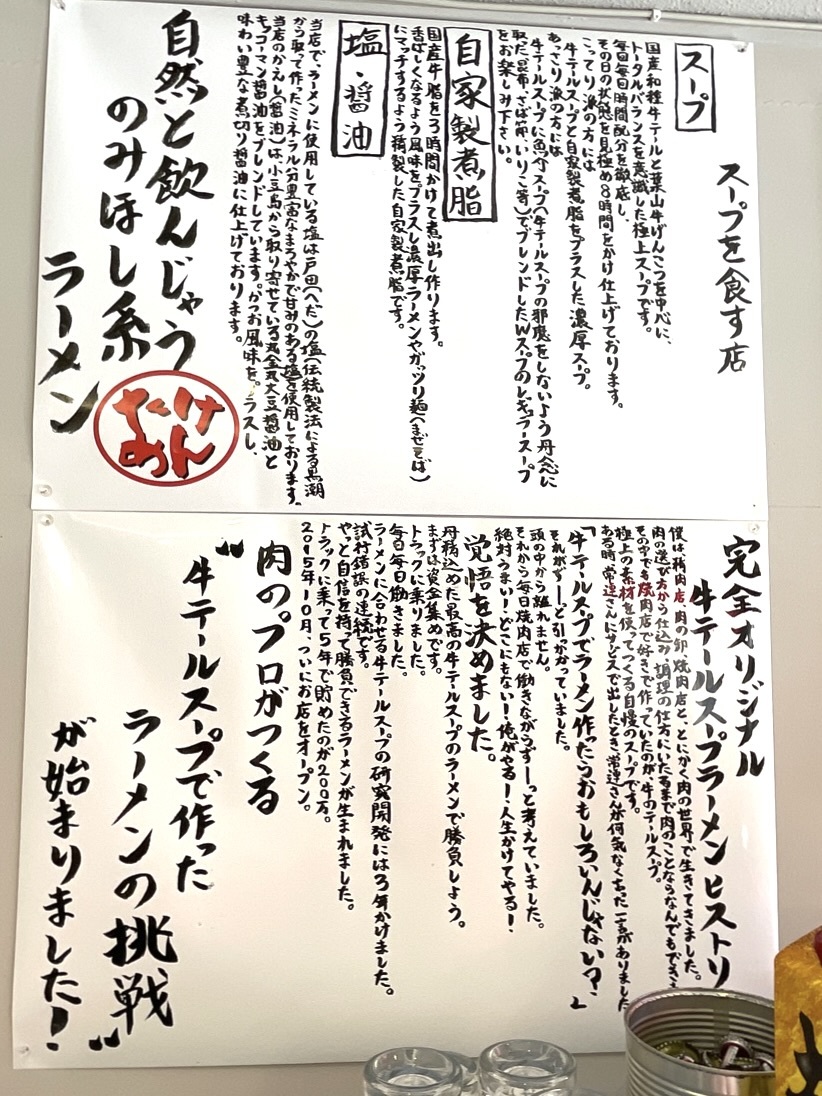 スープを食す店
スープ
国産和種牛テールと葉山牛げんこつを中心に、
トータルバランスを意識した極上スープです。
毎日毎日時間配分を徹底し、
その日の状態を見極め8時間をかけ仕上げております。
こってり派の方には
牛テールスープと自家製煮脂をプラスした濃厚スープ。
あっさり派の方には
牛テールスープに魚介スープ(牛テールスープの邪魔をしないよう丹念に
取た昆布、さば節、いりこ等)でブレンドしたWスープのレギュラースープ
をお楽しみ下さい。
自家製煮脂
国産牛脂を3時間かけて煮出し作ります。
香ばしくなるよう風味をプラスし濃厚ラーメンやガッツリ麺(まぜそば)
にマッチするよう精製した自家製煮脂です。
塩・醤油
当店で、ラーメンに使用している塩は戸田(へだ)の塩(伝統製法による黒潮
から取って作ったミネラル分豊富なまろやかで甘みのある塩を使用しております。
当店のかえし(醤油)は、小豆島から取り寄せている丸金丸大豆醤油と
キッコーマン醤油をブレンドしています。かつお風味をプラスし、
味わい豊な煮切り醤油に仕上げております。
自然と飲んじゃう
のみほし系
ラーメン
たけ
めん
完全オリジナル
牛テールスープラーメンヒストリ
僕は、精肉店、肉の卸、焼肉店と、とにかく肉の世界で生きてきました。
肉の選び方から仕込み、調理の仕方にいたるまで肉のことならなんでもできま
その中でも焼肉店で好きで作っていたのが、牛のテールスープ。
極上の素材を使ってつくる自慢のスープです。
ある時、常連さんにサービスで出したとき、常連さんが何気なく言った一言がありました
「牛テールスープでラーメン作ったらおもしろいんじゃない?」
それがずーと引がかっていました。
頭の中から離れません。
それから毎日焼肉店で働きながらずーっと考えていました。
絶対うまい!どこにもない!俺がやる!、人生かけてやる!
覚悟を決めました。
丹精込めた最高の牛テールスープのラーメンで勝負しよう。
まずは資金集めです。
トラックに乗りました。
毎日毎日働きました。
ラーメンに合わせる牛テールスープの研究開発には3年かけました。
試行錯誤の連続です。
やっと自信を持って勝負できるラーメンが生まれました。
トラックに乗って5年で貯めたのが200万。
2015年10月、ついにお店をオープン。
肉のプロがつくる
"牛テールスープで作った
ラーメンの挑戦"
が始まりました!